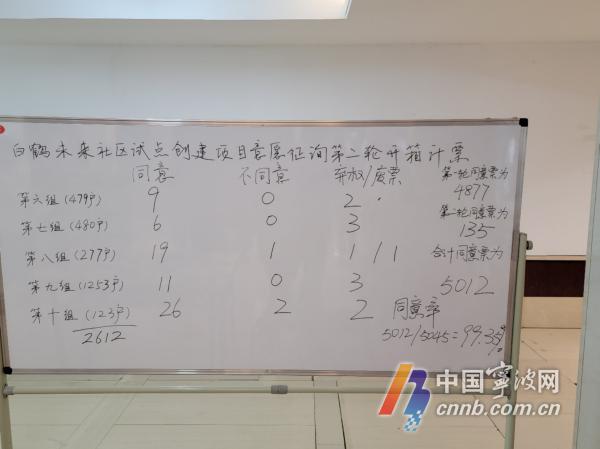 白鹤未来社区试点创建项目意愿征询第二轮开箱计票
同意 不同意 弃权/废票
第六组(479户) 9 0 2
第七组(480户) 6 0 3
第八组(277户) 19 1 1/1
第九组(1253户) 11 0 3
第十组(123户) 26 2 2
2612
第一轮同意票为
4877
第二轮同意票为
135
合计同意票为
5012
同意率
5012/5045=99.35%
中国宁波网
cnnb.com.cn